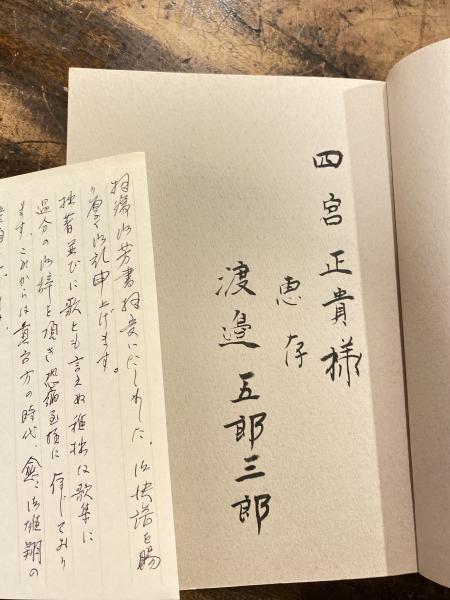 四宮正貴様
恵存
渡邉五郎三郎
御芳書拝受いたしました。
り厚く御礼申上げます。
拙著並びに歌とも言えぬ稚拙な歌集に
過分の御辞を頂き恐縮至極に存じており
ます。これからは貴台方の時代、愈々御雄翔の